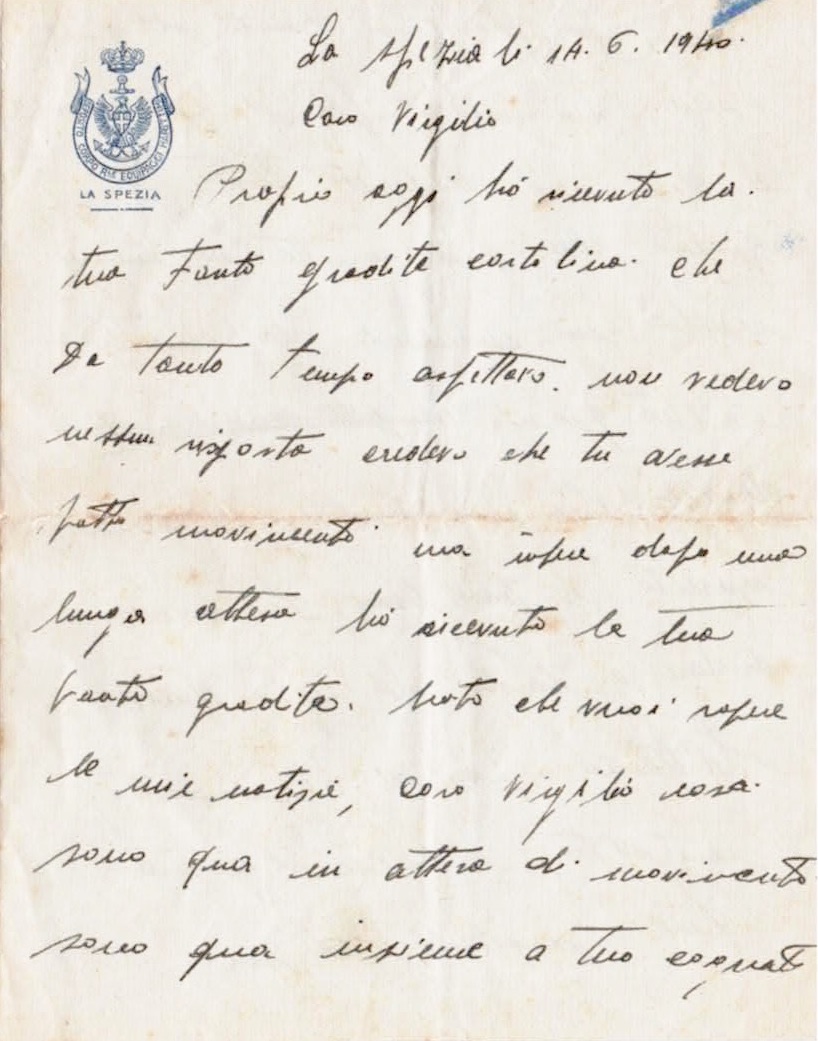 La Spezia li 14. 6. 1940.
Caro Virgilio
DEPOSITO CORPO RLE EQUIPAGGI MARITTIMI
LA SPEZIA
Proprio oggi hó ricevuto la.
tua Tanto gradita cartolina. che
Da tanto tempo aspettavo. non vedevo
nessuna risposta credevo che tu avesse
fatto movimento ma dopo una
lunga attesa hó ricevuto la tua
tanto gradita. Noto che vuoi sapere
le mie notizie, caro Virgilió cosa.
sono qua in attesa di movimento.
sono qua insieme a tuo cognato